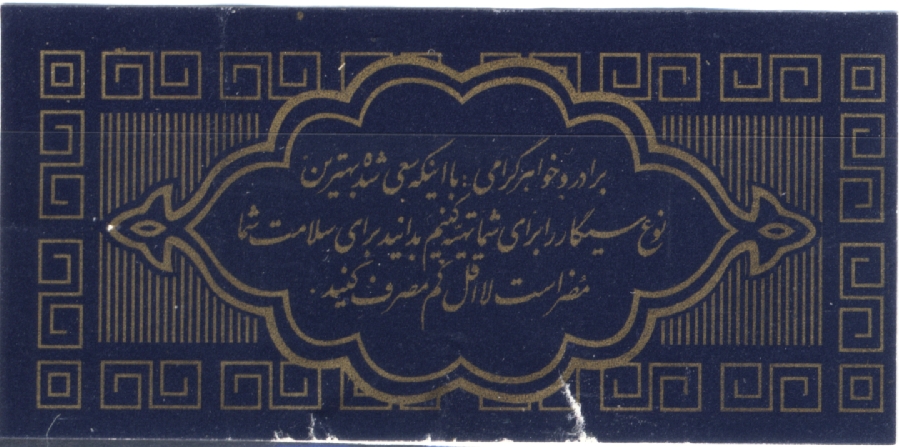 برادر و خواهر گرامی : با اینکه سعی شده بهترین
نوع سیگار را برای شما تهیه کنیم بدانید برای سلامت شما
مضر است لااقل کم مصرف کنید .